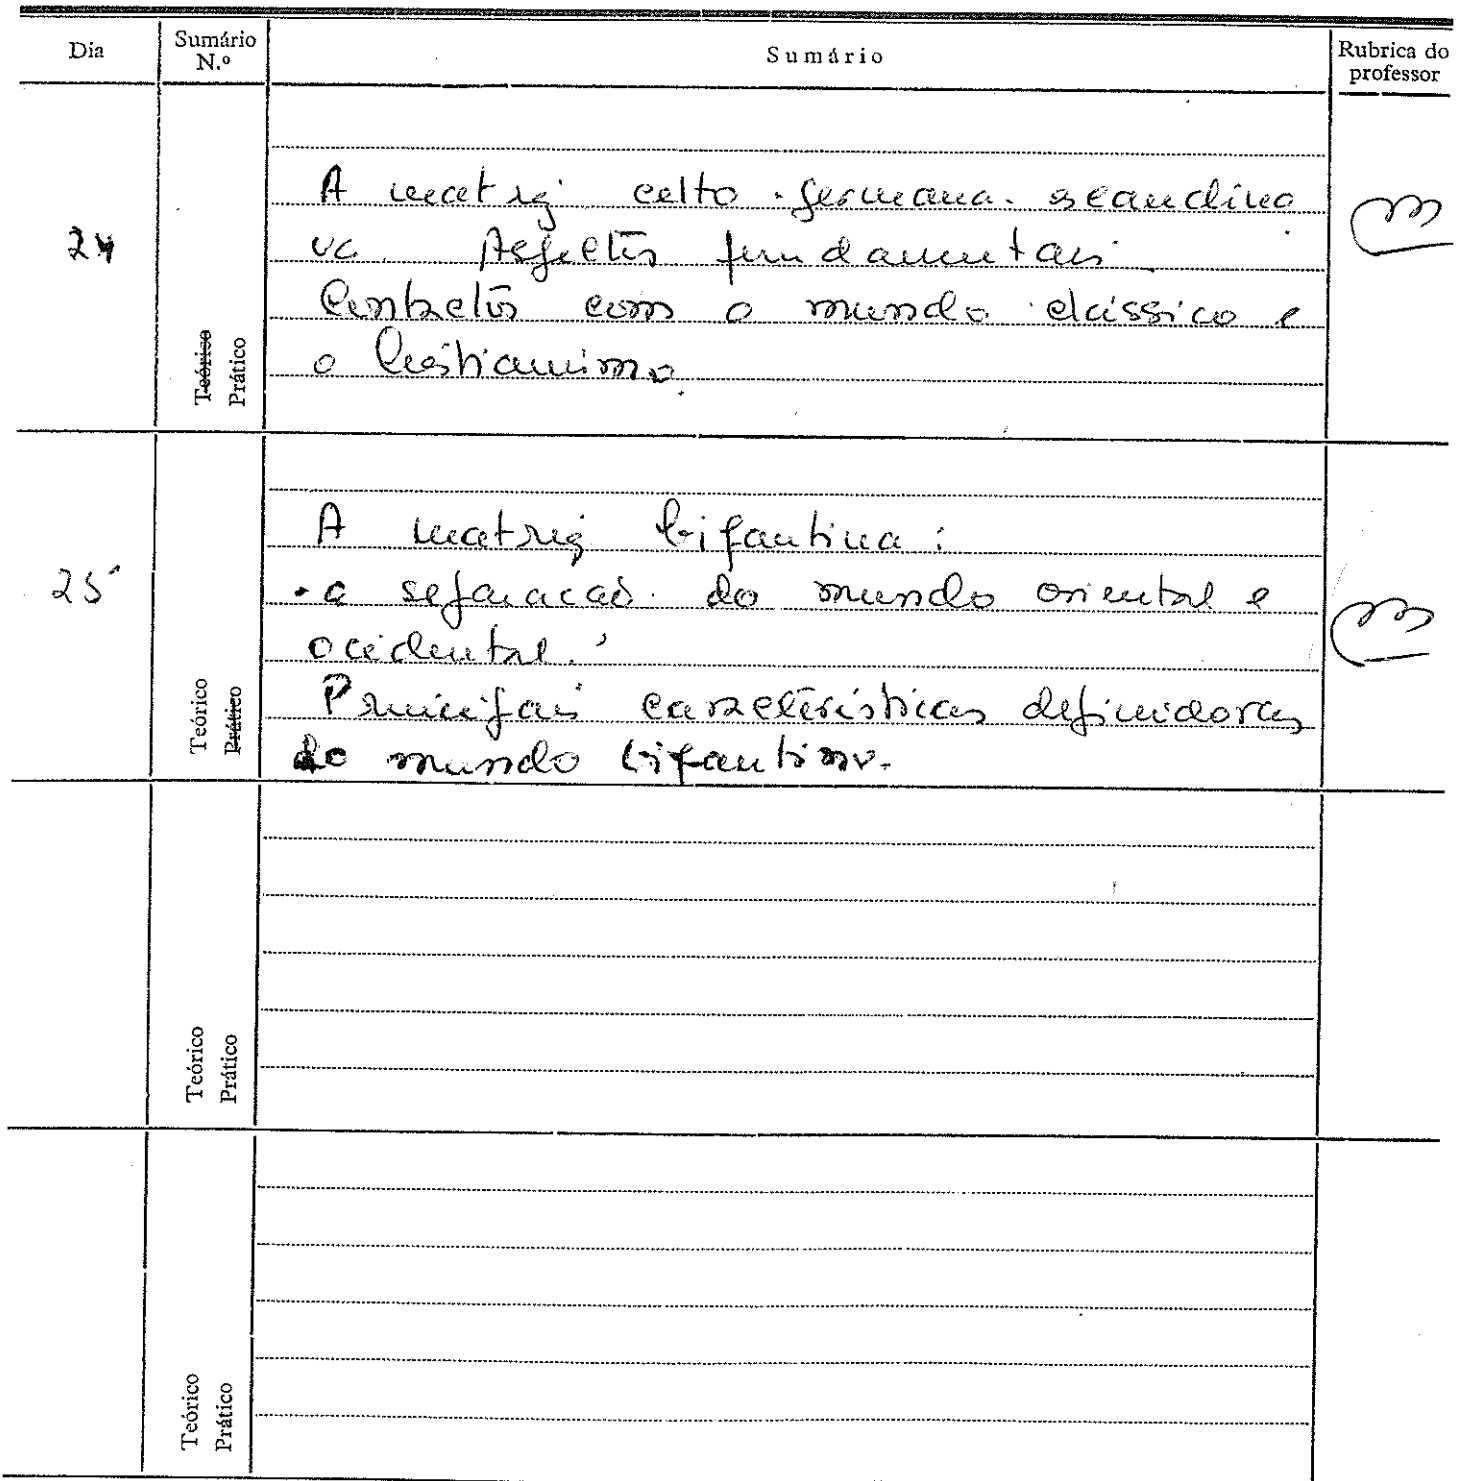 Dia
Sumário
N.º
Sumário
Rubrica do
professor
24
Teórico
Prático
A matriz celto-germana-scandina
va. Aspectos fundamentais.
Contactos com o mundo clássico e
o Cristianismo.
25
Teórico
Prático
A matriz bizantina:
. a separação do mundo oriental e
ocidental.
Principais características definidoras
do mundo bizantino.
Teórico
Prático
Teórico
Prático